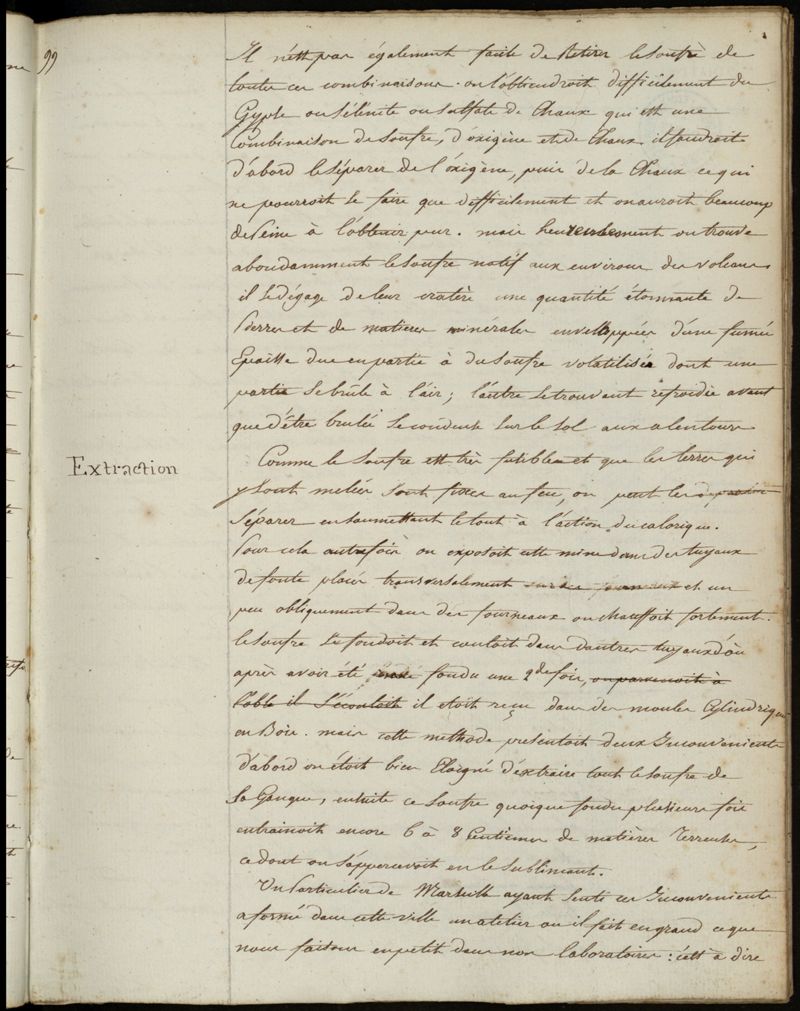 99
Il n'est pas également facile de Retirer le soufre de
toutes ces combinaisons. on l'obtiendroit difficilement du
Gypse ou sélénite ou sulfate de Chaux qui est une
Combinaison de soufre, d'oxigène et de Chaux il faudroit
d'abord le séparer de l'oxigène, puis de la Chaux ce qui
ne pourroit se faire que difficilement et on auroit beaucoup
de Peine à l'obtenir pur. mais heureusement on trouve
abondamment le soufre natif aux environs des volcans
il se dégage de leur cratère une quantité étonnante de
Pierres et de matières minérales enveloppées d'une fumée
Epaisse due en partie à du soufre volatilisée dont une
partie se brûle à l'air; l'autre se trouvant refroidie avant
que d'être brulée se condense sur le sol aux alentours
Extraction
Comme le soufre est très fusible et que les terres qui
y sont melées sont fixes au feu, on peut les
séparer en soumettant le tout à l'action du calorique.
Pour cela autrefois on exposoit cette mine dans des tuyaux
de fonte placés transversalement et un
peu obliquement dans des fourneaux on chauffoit fortement.
le soufre se fondoit et couloit dans d'autres tuyaux d'où
après avoir été fondu une 2de fois, on parvenoit à
il s'écouloit il etoit reçu dans des moules Cylindriques
en Bois. mais cette methode presentoit deux Inconvenients
d'abord on étoit bien Eloigné d'extraire tout le soufre de
sa Gangue, ensuite ce soufre quoique fondu plusieurs fois
entrainoit encore 6 à 8 Centiemes de matières Terreuses,
ce dont on s'appercevoit en le sublimant.
Un Particulier de Marseille ayant senti ces Inconvenients
a formé dans cette ville un atelier ou il fait en grand ce que
nous faisons en petit dans nos laboratoires: c'est à dire